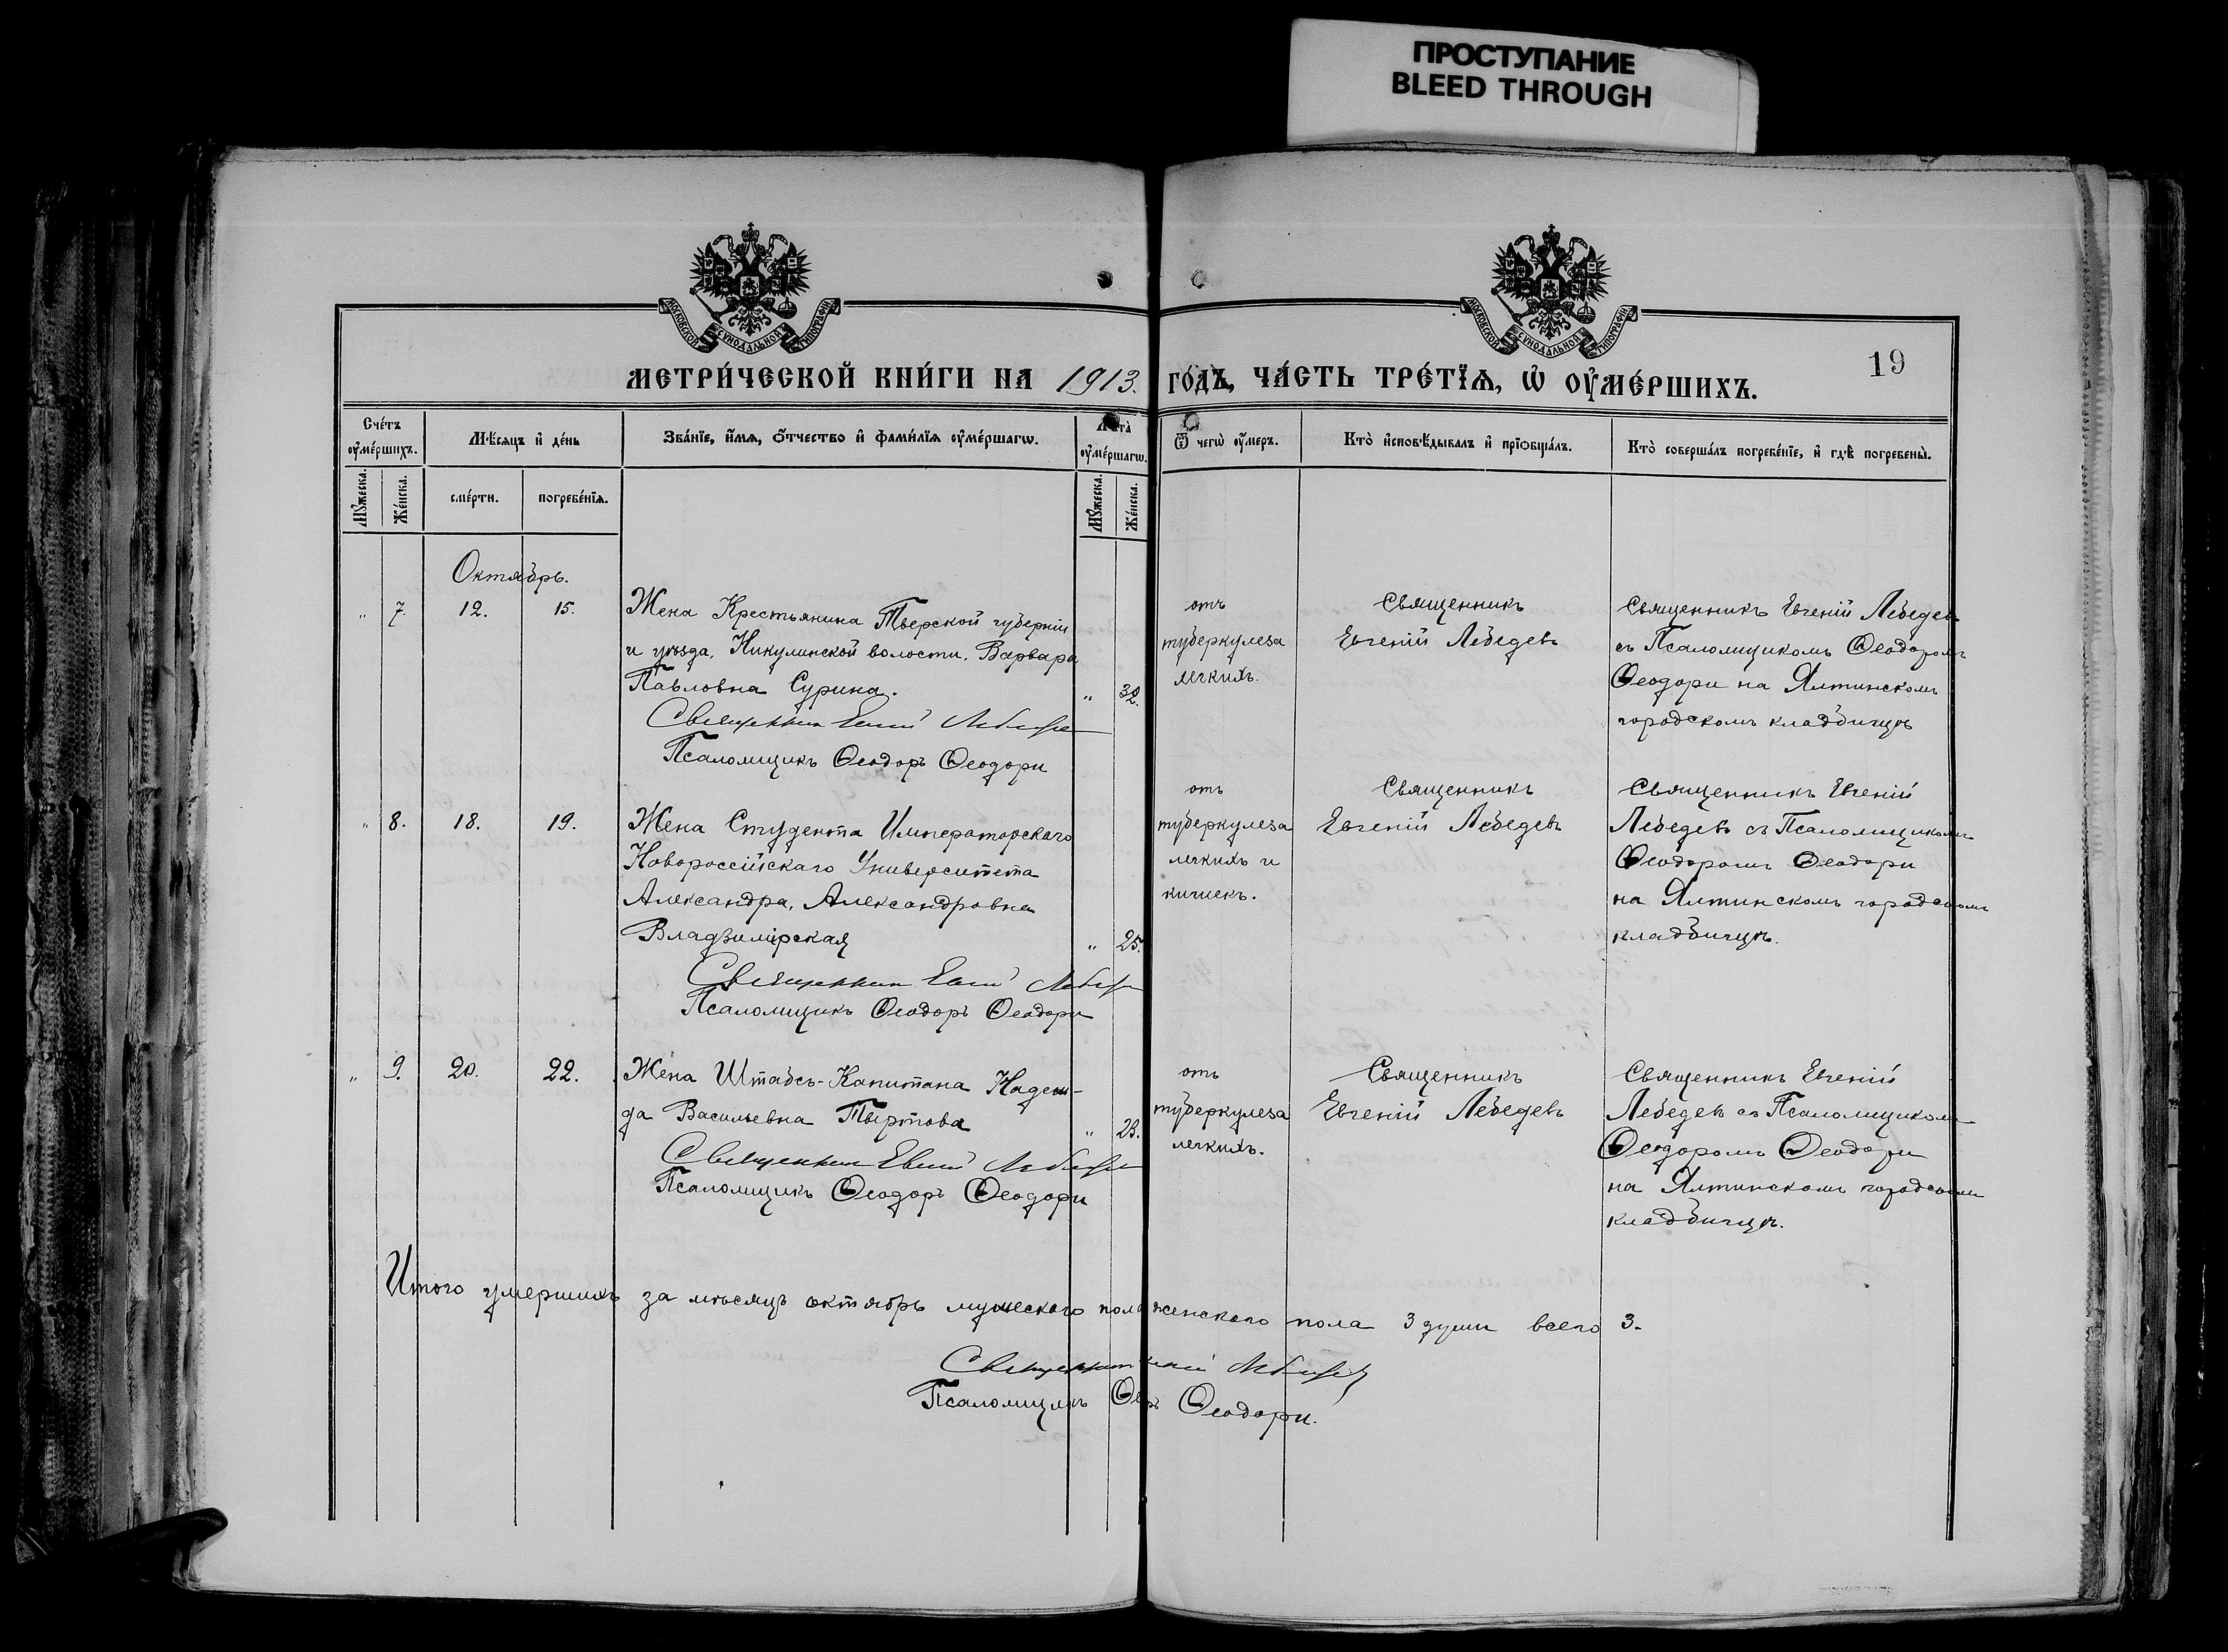 ПРОСТУПАНИЕ
BLEED THROUGH
МОСКОВСКОЙ СУНОДАЛЬНОЙ ТИПОГРАФІИ
МОСКОВСКОЙ СУНОДАЛЬНОЙ ТИПОГРАФІИ
19
МЕТРИ́ЧЕСКОЙ КНИ́ГИ НА 1913. ГО́ДЪ, ЧА́СТЬ ТРЕ́ТЇѦ, Ѡ҆ ОУ҆МЕ́РШИХЪ.
Сче́тъ оу҆ме́ршихъ.
Мѣ́сяцъ и҆ де́нь
Зва́нїе, и҆́мѧ, ѻ҆́тчество и҆ фами́лїѧ оу҆ме́ршагѡ.
Лѣта̀ оу҆ме́ршагѡ.
Ѿ чегѡ̀ оу҆́меръ.
Кто̀ и҆сповѣ́дывалъ и҆ прїѡбща́лъ.
Кто̀ соверша́лъ погребе́нїе, и҆ гдѣ̀ погребены̀.
Мꙋ́жеска.
Же́нска.
сме́рти.
погребе́нїѧ.
Мꙋ́жеска.
Же́нска.
Октябрь.
" 7. 12. 15.
Жена Крестьянина Тверской губерніи
и уѣзда, Никулинской волости. Варвара
Павловна Сурина. " 32.
Священникъ Евгеній Лебедевъ
Псаломщикъ Ѳеодоръ Ѳеодори
отъ
туберкулеза
легкихъ.
Священникъ
Евгеній Лебедевъ
Священникъ Евгеній Лебедевъ
съ Псаломщикомъ Ѳеодоромъ
Ѳеодори на Ялтинскомъ
городскомъ кладбищѣ
" 8. 18. 19.
Жена Студента Императорскаго
Новороссійскаго Университета
Александра, Александровна
Владзимірская " 25.
Священникъ Евгеній Лебедевъ
Псаломщикъ Ѳеодоръ Ѳеодори
отъ
туберкулеза
легкихъ и
кишекъ.
Священникъ
Евгеній Лебедевъ
Священникъ Евгеній
Лебедевъ съ Псаломщикомъ
Ѳеодоромъ Ѳеодори
на Ялтинскомъ городскомъ
кладбищѣ.
" 9. 20. 22.
Жена Штабсъ-Капитана Надеж-
да Васильевна Твертова " 23.
Священникъ Евгеній Лебедевъ
Псаломщикъ Ѳеодоръ Ѳеодори
отъ
туберкулеза
легкихъ.
Священникъ
Евгеній Лебедевъ
Священникъ Евгеній
Лебедевъ съ Псаломщикомъ
Ѳеодоромъ Ѳеодори
на Ялтинскомъ городскомъ
кладбищѣ.
Итого умершихъ за мѣсяцъ октябрь мужескаго пола женскаго пола 3 души всего 3.
Священникъ Евгеній Лебедевъ
Псаломщикъ Ѳеодоръ Ѳеодори.